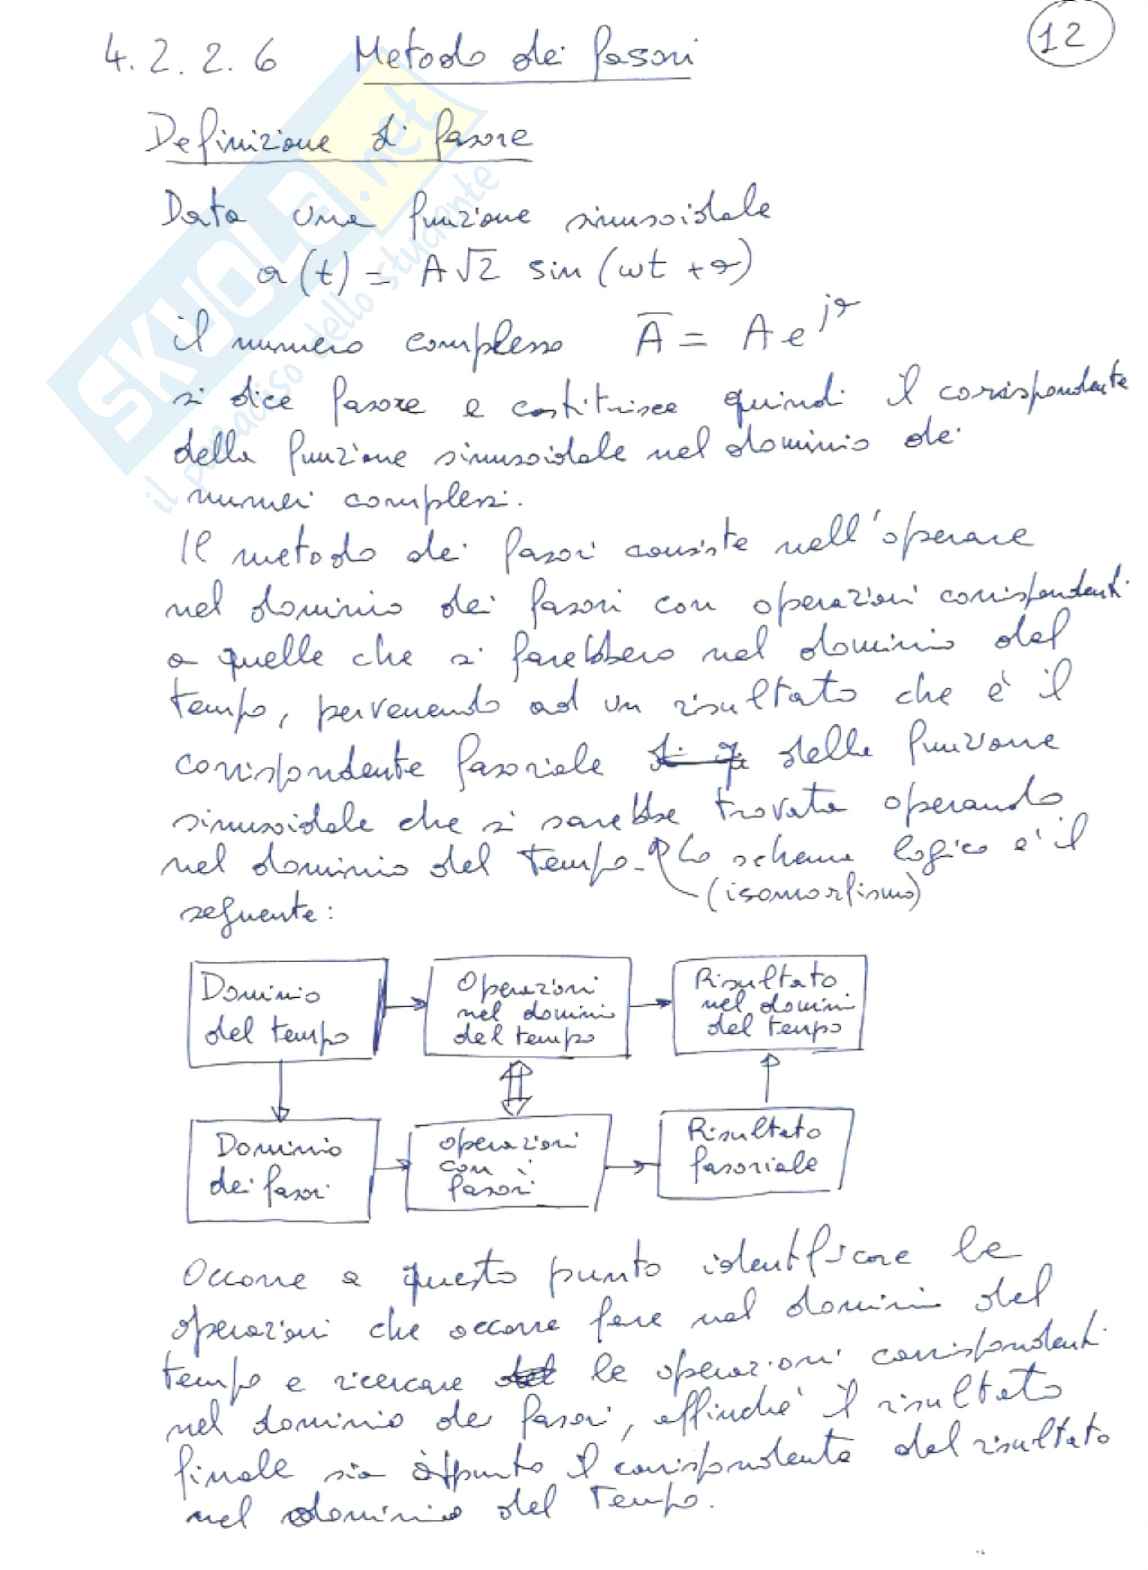 4.2.2.6 Metodo dei fasori
12
Definizione di fasore
Data una funzione sinusoidale
a(t) = A√2 sin(ωt + ϑ)
il numero complesso A̅ = A e^{jϑ}
si dice fasore e costituisce quindi il corrispondente
della funzione sinusoidale nel dominio dei
numeri complessi.
Il metodo dei fasori consiste nell'operare
nel dominio dei fasori con operazioni corrispondenti
a quelle che si farebbero nel dominio del
tempo, pervenendo ad un risultato che è il
corrispondente fasoriale della funzione
sinusoidale che si sarebbe trovata operando
nel dominio del tempo. Lo schema logico è il
(isomorfismo)
seguente:
Dominio
del tempo
Operazioni
nel dominio
del tempo
Risultato
nel domini
del tempo
Dominio
dei fasori
operazioni
con i
fasori
Risultato
fasoriale
Occorre a questo punto identificare le
operazioni che occorre fare nel dominio del
tempo e ricercare le operazioni corrispondenti
nel dominio dei fasori, affinché il risultato
finale sia appunto il corrispondente del risultato
nel dominio del tempo.
SKUOLA.net
il paradiso dello studente